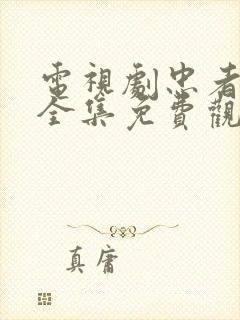 電視劇忠者
全集免費觀
真庸